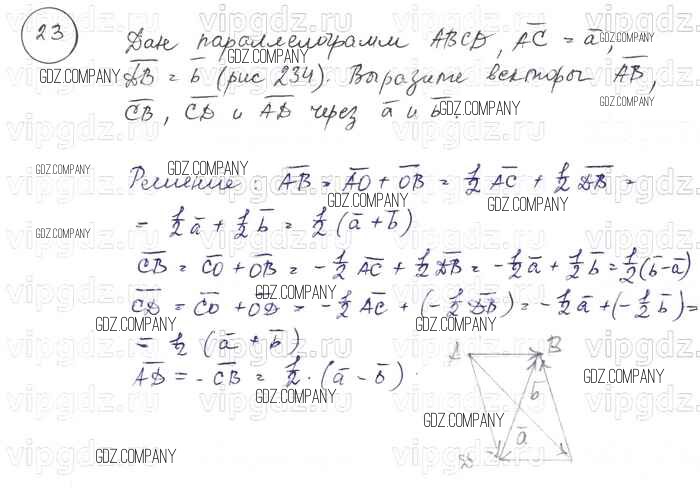 23
Дан параллелограмм ABCD, A̅C̅ = a̅,
D̅B̅ = b̅ (рис 234). Выразите векторы A̅B̅,
C̅B̅, C̅D̅ и A̅D̅ через a̅ и b̅.
Решение: A̅B̅ = A̅O̅ + O̅B̅ = 1/2 A̅C̅ + 1/2 D̅B̅ =
= 1/2 a̅ + 1/2 b̅ = 1/2 (a̅ + b̅)
C̅B̅ = C̅O̅ + O̅B̅ = - 1/2 A̅C̅ + 1/2 D̅B̅ = - 1/2 a̅ + 1/2 b̅ = 1/2 (b̅ - a̅)
C̅D̅ = C̅O̅ + O̅D̅ = - 1/2 A̅C̅ + (- 1/2 D̅B̅) = - 1/2 a̅ + (- 1/2 b̅) =
= 1/2 (a̅ + b̅)
A̅D̅ = - C̅B̅ = 1/2 · (a̅ - b̅)
A B
b̅
a̅
D
GDZ.COMPANY
vipgdz.ru